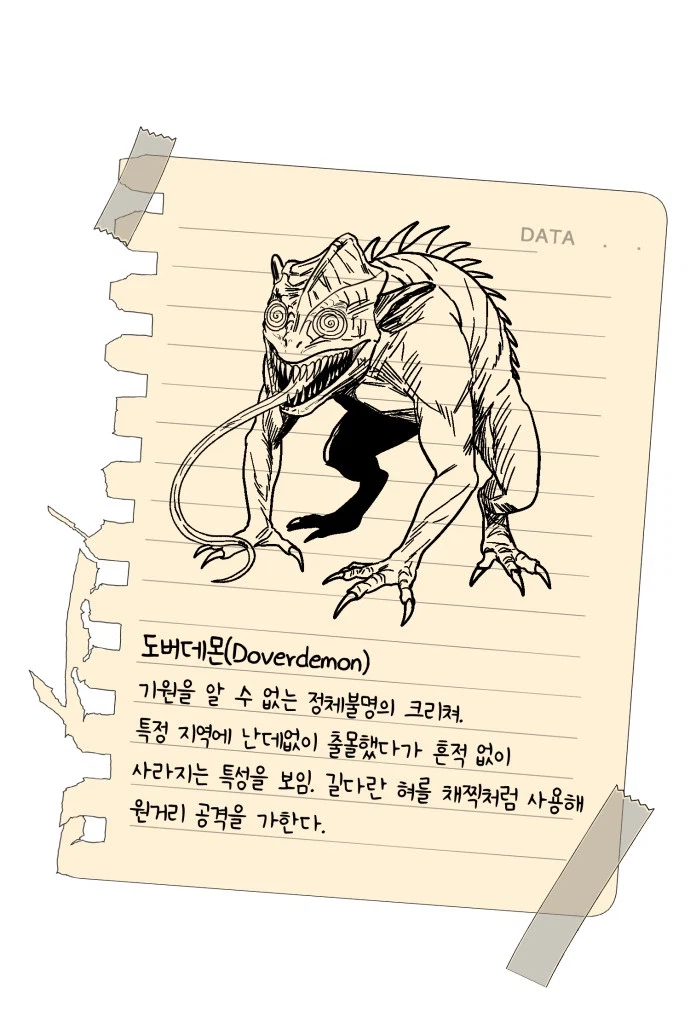 DATA . .
도버데몬(Doverdemon)
기원을 알 수 없는 정체불명의 크리쳐.
특정 지역에 난데없이 출몰했다가 흔적 없이
사라지는 특성을 보임. 길다란 혀를 채찍처럼 사용해
원거리 공격을 가한다.